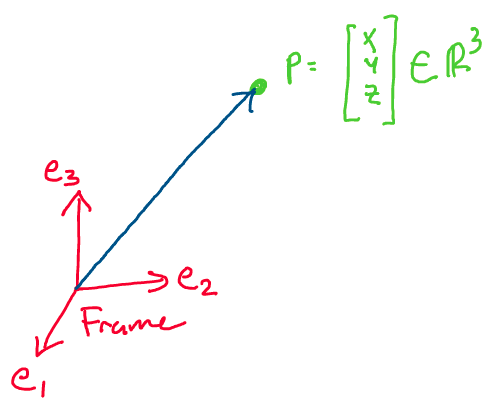 P = [x y z] ∈ ℝ³
e₃
e₂
Frame
e₁